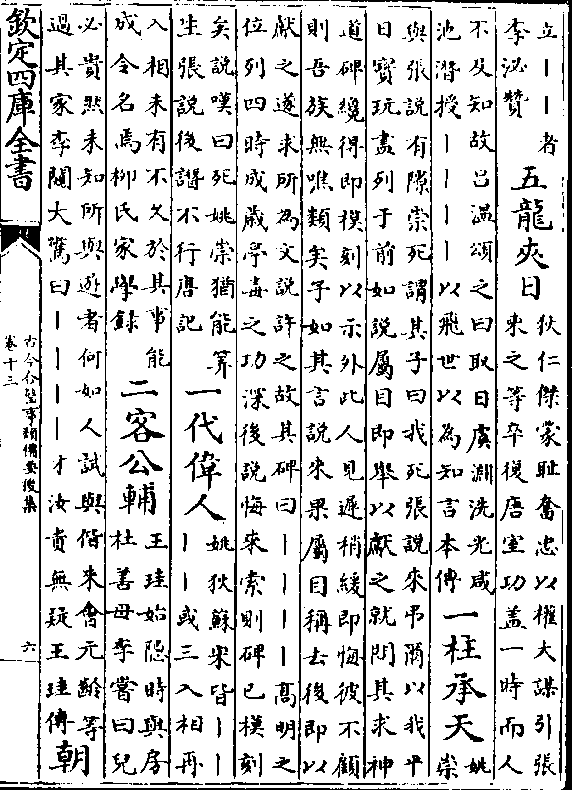 立丨丨者
李泌贊
五龍夾日
狄仁傑蒙耻奮忠以權大謀引張
柬之等卒復唐室功盖一時而人
不及知故吕溫頌之曰取日虞淵洗光咸
池潛授丨丨丨丨以飛世以為知言本傳
一柱承天
姚
崇
與張說有隙崇死謂其子曰我死張說來弔爾以我平
日寳玩盡列于前如說屬目即舉以獻之就問其求神
道碑纔得即模刻以示外此人見遲稍緩即悔彼不顧
則吾族無噍類矣子如其言說來果屬目稱去後即以
獻之遂求所為文說許之故其碑曰丨丨丨丨高明之
位列四時成嵗亭毒之功深後說悔來索則碑已模刻
矣說嘆曰死姚崇猶能筭
生張說後譖不行唐記
一代偉人
姚狄蘇宋皆丨丨
丨丨或三入相再
入相未有不久於其事能
成令名焉柳氏家學錄
二客公輔
王珪始隠時與房
杜善母李嘗曰兒
必貴然未知所與遊者何如人試與偕來會元齡等
過其家李闚大驚曰丨丨丨丨才汝貴無疑王珪傳
朝
欽定四庫全書
古今合璧事類備要後集
卷十三
六